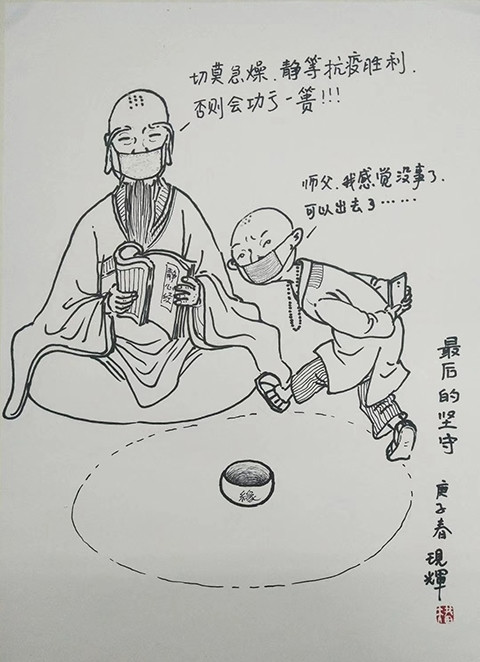 切莫急燥.静等抗疫胜利.
否则会功亏一篑!!!
师父.我感觉没事了.
可以出去了……
静心咒
缘
最后的坚守
庚子春
現輝